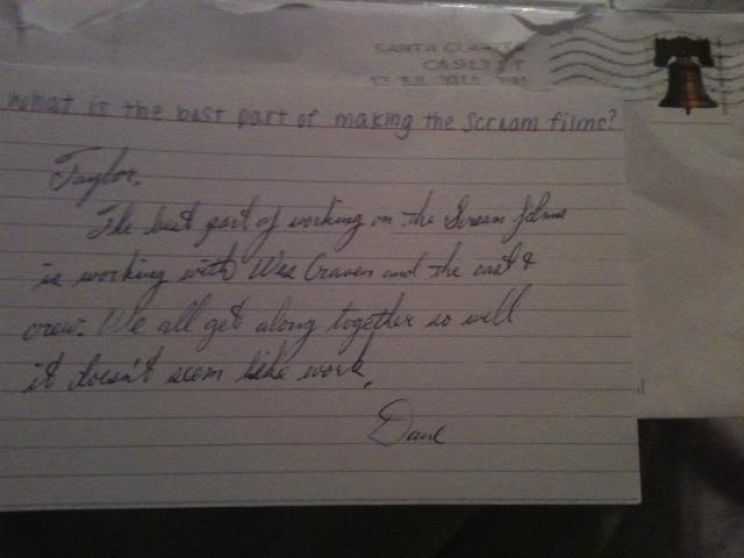 SANTA CLARITA
CA 913
What is the best part of making the Scream films?
Taylor,
The best part of working on the Scream films
is working with Wes Craven and the cast &
crew. We all get along together so well
it doesn't seem like work.
Dane